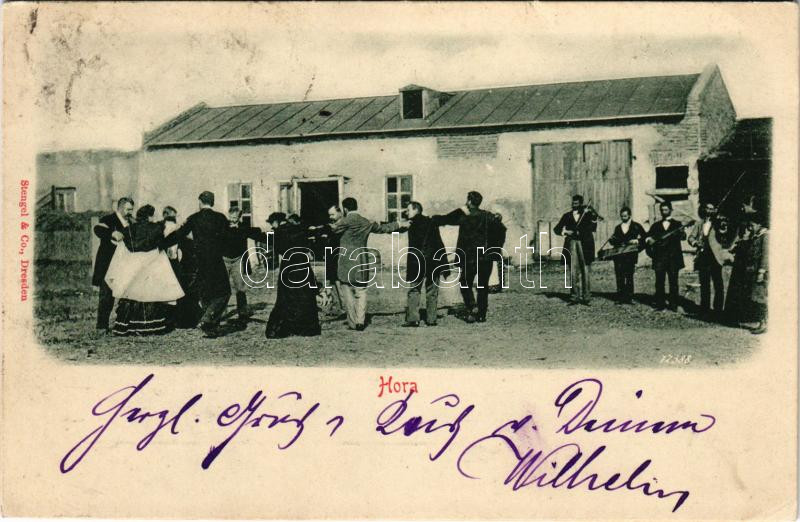 Stengel & Co., Dresden
darabanth
12388
Hora
Herzl. Gruß u. Kuß v. Deinem
Wilhelm